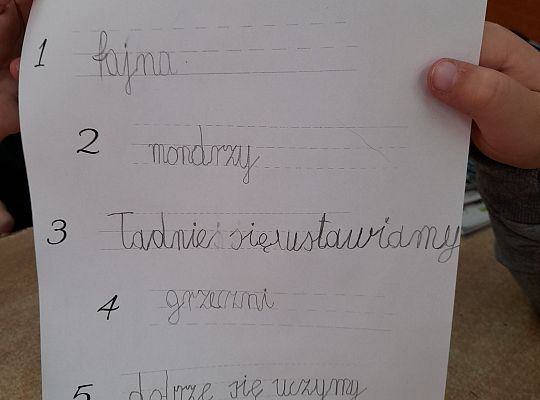 1 fajna
2 mondrzy
3 Ładnie się ustawiamy
4 grzeczni
5 dobrze się uczymy